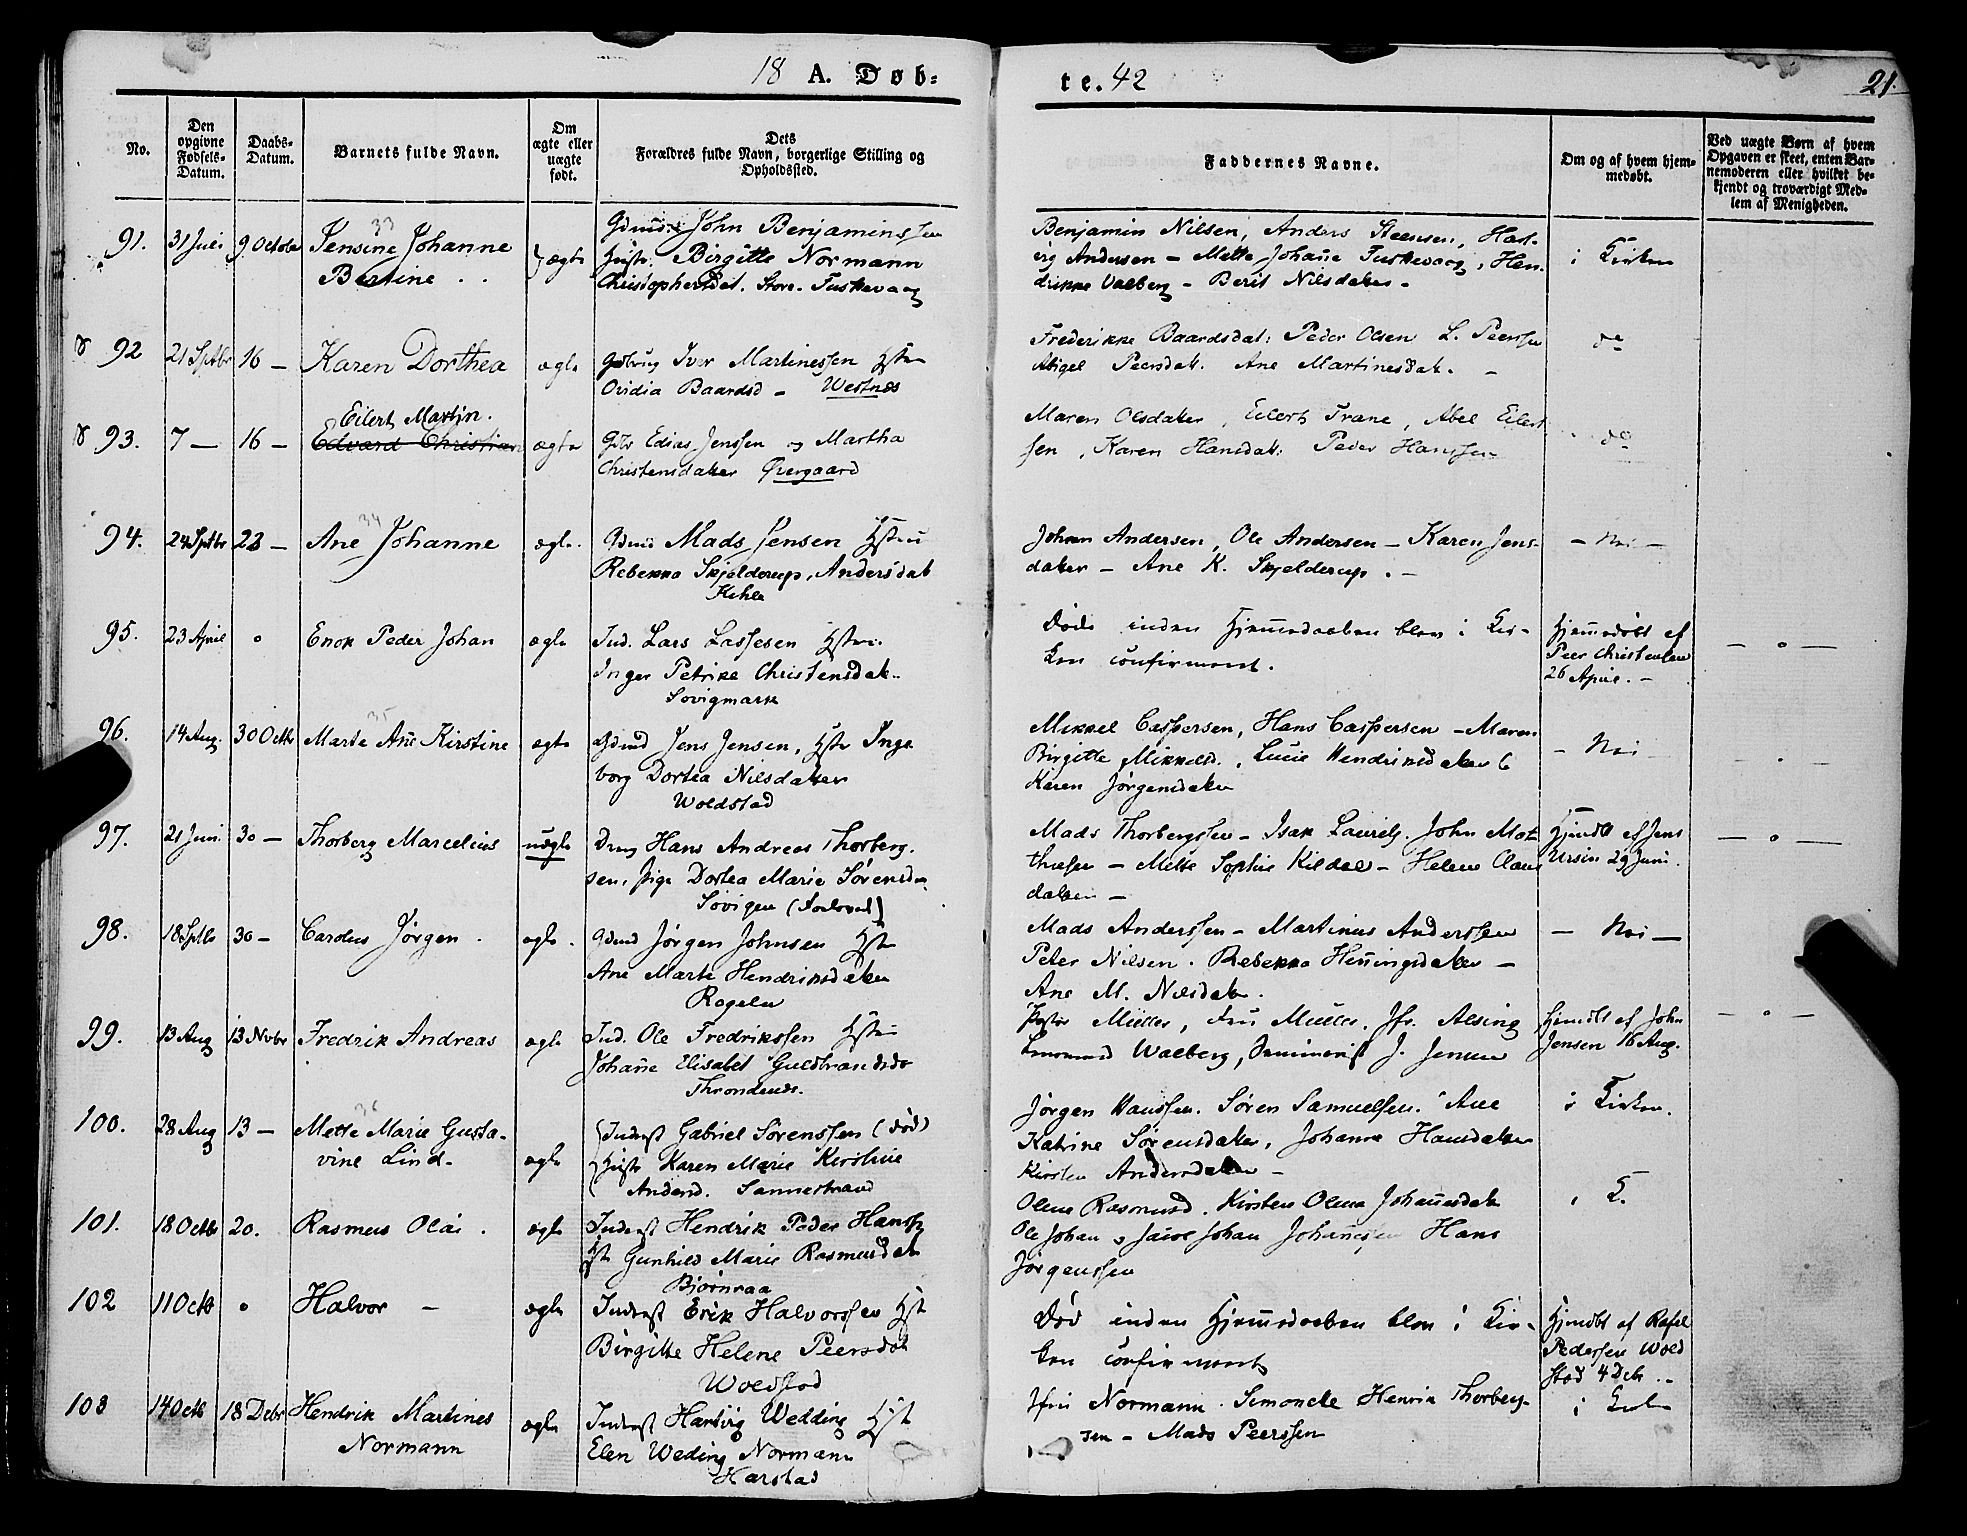 18 A. Døb=
te. 42
21.
No.
Den opgivne Fødsels-Datum.
Daabs-Datum.
Barnets fulde Navn.
Om ægte eller uægte født.
Dets Forældres fulde Navn, borgerlige Stilling og Opholdssted.
Faddernes Navne.
Om og af hvem hjemmedøbt.
Ved uægte Børn af hvem Opgaven er skeet, enten Barnemoderen eller hvilket bekjendt og troværdigt Medlem af Menigheden.
91. 31 Juli 9 October Jensine Johanne ægte Gdmd: John Benjaminssen
33
Bertine . . Hustr. Birgitte Normann
Christophersdat. Store-Tuskevaag
Benjamin Nilsen, Anders Steensen, Hart-
vig Andersen - Mette Johañe Tuskevaag, Hen-
drikke Valberg - Berit Nilsdater - i Kirken
92 21 Sptbr 16 - Karen Dorthea ægte Iver Martinessen Hstru
Ovidia Baardsd - Westnes
Frederikke Baardsdat: Peder Olsen L. Peerssen
Abigel Peersdat. Ane Martinesdat. - do
93. 7 - 16 - Eilert Martin.
Edvard Christian ægte Edias Jenssen og Martha
Christensdatter Øvergaard
Maren Olsdatter, Eilert Trane, Abel Eilert
sen, Karen Hansdat: Peder Hanssen do
94. 24 Sptbr 23 - Ane Johanne ægte. Gdmd Mads Jensen Hstru
34
Rebekka Skjelderup, Andersdat
Kihle
Johan Andersen, Ole Andersen - Karen Jens-
datter - Ane K. Skjelderup . - - Nei -
95. 23 April o Enok Peder Johan ægte Ind. Lars Lassesen Hstru
Inger Petrike Christensdat.
Sovigmark
Døde inden Hjemmedaaben blev i Kir-
ken confirmeret.
Hjemmedøbt af
Peer Christensen
26 April. - - o -
96. 14 Aug. 30 Octb Marte Añe Kirstine ægte Gdmd Jens Jensen, Hstr Inge
35
borg Dortea Nilsdatter
Woldstad
Mikkel Caspersen, Hans Caspersen - Maren
Birgitte Mikkelsd. , Lucie Hendriksdatter
Karen Jørgensdatter - Nei
97. 21 Juni 30 - Thorberg Marcelius uægte Dreng Hans Andreas Thorberg-
sen, Pige Dortea Marie Sørensd.
Sovigen (Forlovet)
Mads Thorbergsen - Isak Laurits. John Mat
thiesen - Mette Sophie Kildal - Helene Claus
datter -
Hjmdbt af Jens
Ursin 29 Juni. - o -
98. 18 Sptb 30 - Cardus Jørgen . ægte . Gdmd Jørgen Johnsen Hstr
Ane Marte Hendriksdatter
Rogeln
Mads Anderssen - Martinus Anderssen
Peter Nilsen. Rebekka Heñingsdatter -
Ane M. Nilsdat. - Nei -
99. 13 Aug 13 Novbr Fredrik Andreas ægte Ind. Ole Fredrikssen Hstru
Johañe Elisabet Guldbrandsdr
Throndenes.
Pastor Müller, Fru Müller, Jfr. Alsing
Walberg, Seminarist J. Jensen
Hjmdbt af John
Jensen 16 Aug. - o -
100. 28 Aug 13 - Mette Marie Gusta- ægte Inderst Gabriel Sørenssen (død)
36
vine Lind- Hustr Karen Marie Kirstine
Andersd. Sannestrand
Jørgen Hanssen. Søren Samuelsen. Ane
Katrine Sørensdatter, Johanne Hansdatter
Kirsten Andersdatter - i Kirken.
101. 18 Octbr 20. Rasmus Olai . ægte Inderst Hendrik Peder Hanss
Hst Gunhild Marie Rasmusdat
Bjørnraa
Olene Rasmusd. Kirsten Olena Johañesdat
Ole Johan Johan Johanessen Hans
Jørgenssen i K.
102 11 Octb o Halvor - ægte Inderst Erik Halvorssen Hst
Birgitte Helene Peersdat
Woldstad
Død inden Hjemmedaaben blev i Kir-
ken confirmeret
Hjmdbt af Rafel
Pedersen Wold
stad 4 Debr .-
103 14 Octb 18 Debr Hendrik Martines ægte Inderst Hartvig Wedding Hst
Normann Elen Weding Normann
Harstad
Normann. Simonette Henrik Thorberg-
sen - Mads Peerssen i Kirk